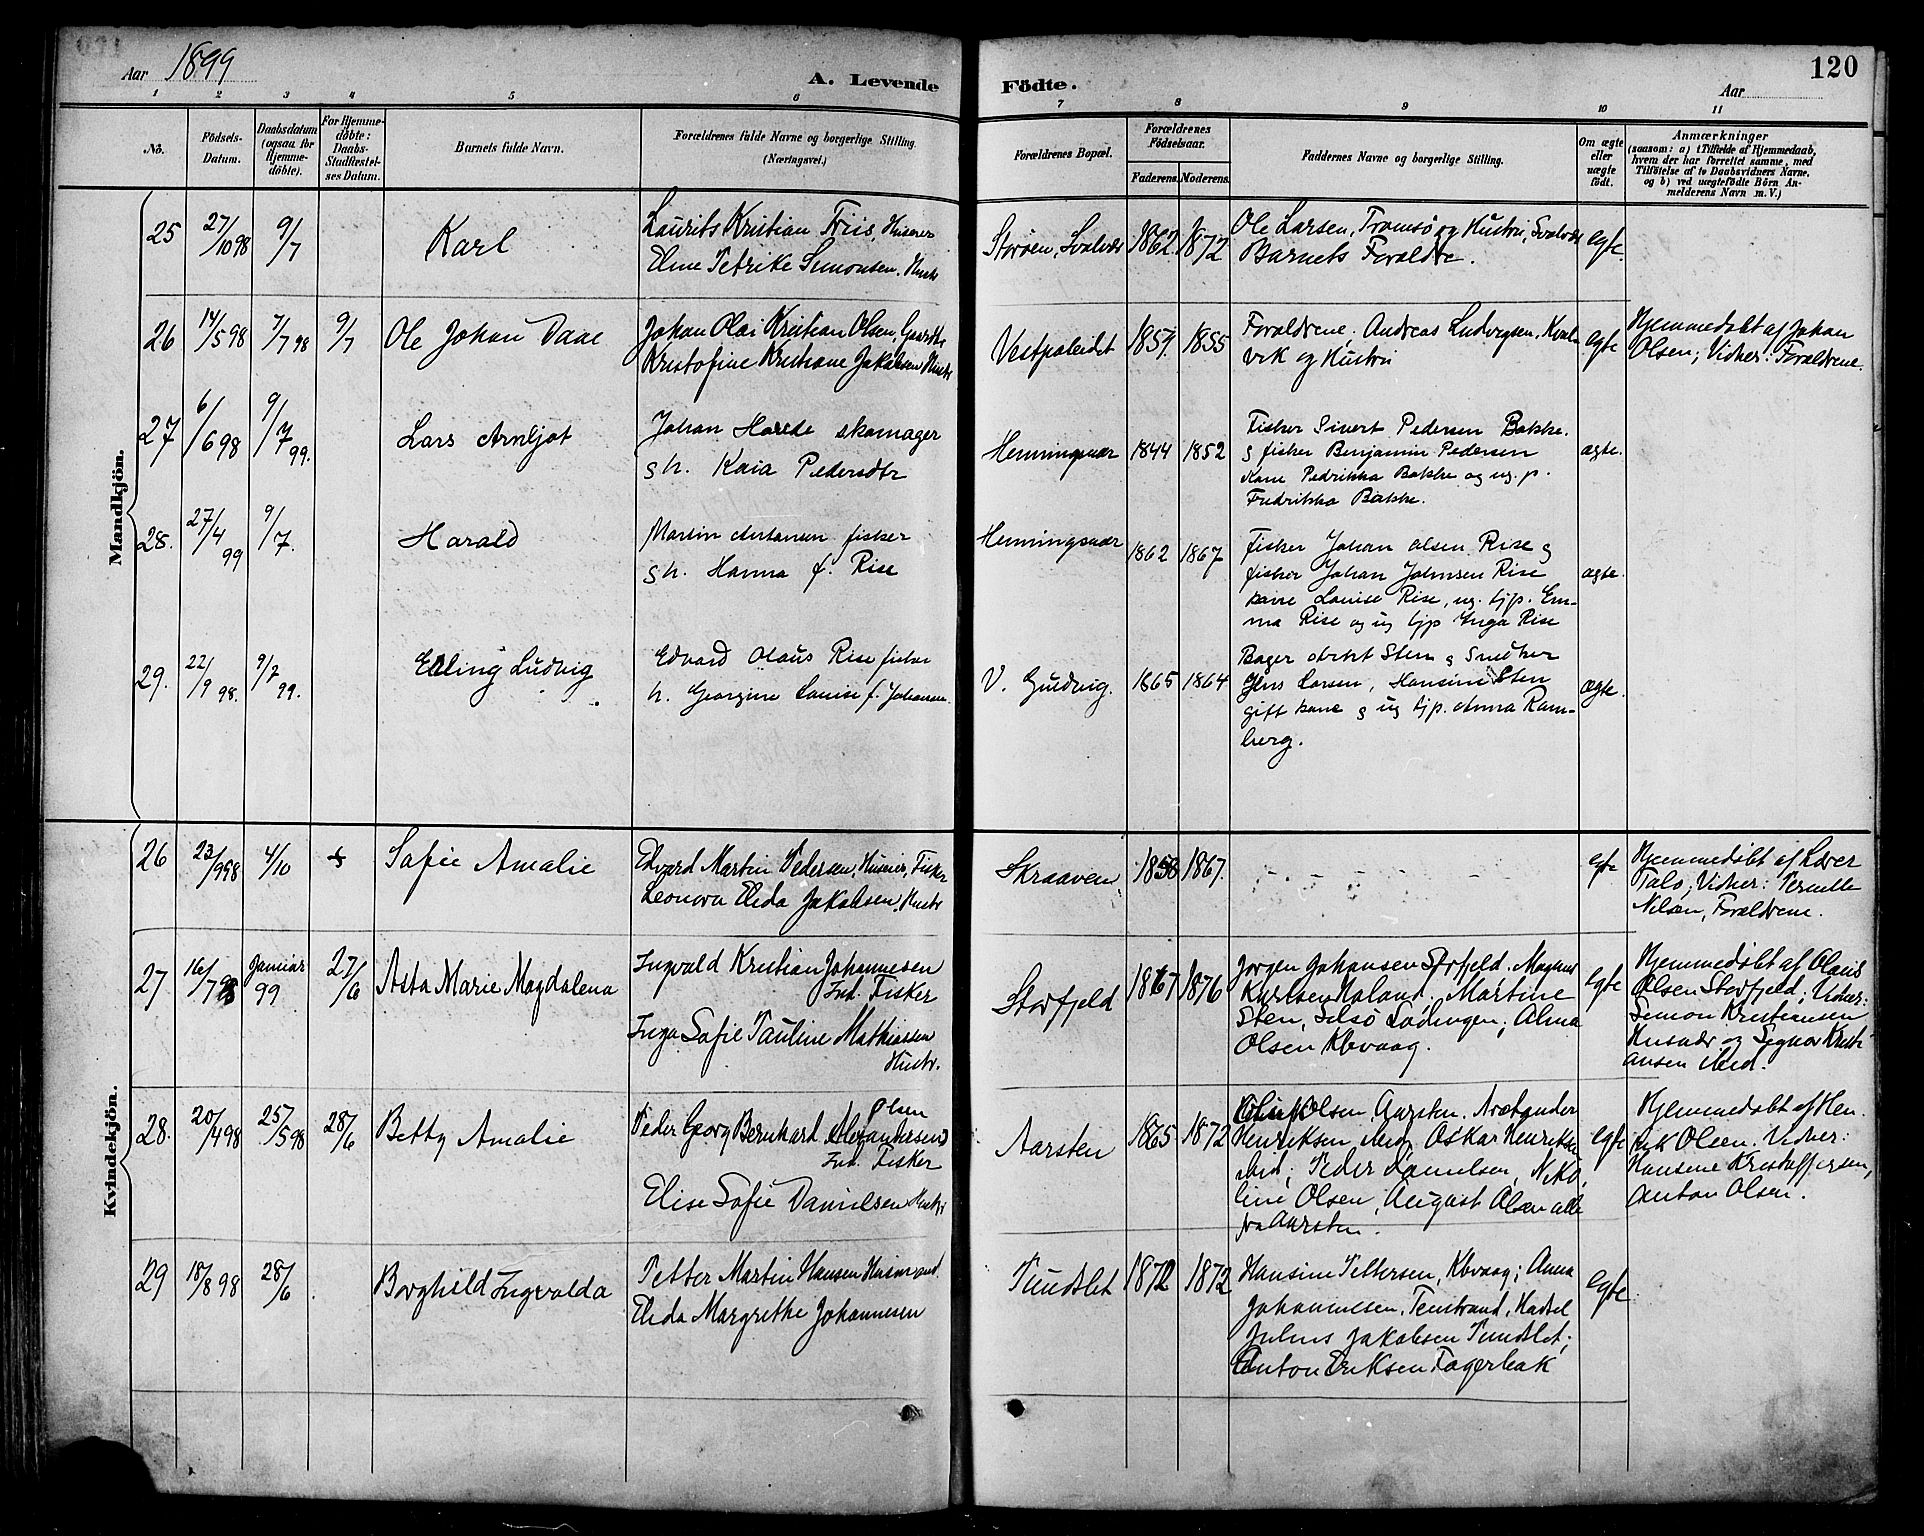 120
Aar 1899
A. Levende Födte.
Aar
1 2 3 4 5 6 7 8 9 10 11
No.
Födsels-
Datum.
Daabsdatum
(ogsaa for
Hjemme-
döbte).
For Hjemme-
döbte:
Daabs-
Stadfæstel-
ses Datum.
Barnets fulde Navn.
Forældrenes fulde Navne og borgerlige Stilling.
(Næringsvei.)
Forældrenes Bopæl.
Forældrenes
Födselsaar.
Faderens. Moderens.
Faddernes Navne og borgerlige Stilling.
Om ægte
eller
uægte
født.
Anmærkninger
(saasom: a) i Tilfælde af Hjemmedaab,
hvem der har forrettet samme, med
Tilföielse af to Daabsvidners Navne,
og b) ved uægtefödte Börn An-
melderens Navn m. V.)
Mandkjön.
25 27/10 98 9/7 Karl
Laurits Kristian Friis,
Petrike Simonsen.
Storøen, 1862 1872
Ole Larsen, Tromsø og Hustru,
Barnets Forældre.
egte
26 14/5 98 7/7 98 9/7 Ole Johan Daae
Johan Olai Kristian Olsen,
Kristofine Kristiane Jakobsen Hustr
Vestpoleidet 1857. 1855
Forældrene, Andreas Ludvigsen,
vik og Hustru
egte
Hjemmedøbt af Johan
Olsen; Vidner: Forældrene.
27 6/6 98 9/7 99. Lars Arnljot
Johan skomager
Kaia Pedersdtr
Henningsvær 1844 1852
Fisker Sivert Pedersen Bakke.
& fisker Benjamin Pedersen
Kone Pedrikka Bakke og ug. p.
Fredrikka Bakke.
ægte.
28. 27/4 99 9/7. Harald
Martin fisker
Hanna f. Rise
Henningsvær 1862 1867
Fisker Johan Olsen Rise &
fisker Johan Johnsen Rise
kone Louise Rise, ug. tjp. Em-
ma Rise og ug tjp Inga Rise
ægte.
29. 22/9 98. 9/7 99. Erling Ludvig
Edvard Olaus Rise fisker
h. Georgine Louise f. Johansen.
V. 1865 1864
Bager Sten & Snedker
Jens Larsen, Hansine Sten
gift kone & ug tjp. Anna Ram-
berg.
ægte.
Kvindekjön.
26 23/9 98 4/10 Sofie Amalie
Edvard Martin Pedersen, Fisker
Leonora Elida Jakobsen, Hustr
Skraaven 1867.
egte
Hjemmedøbt af Lærer
Vidner: Pernelle
Nilsen, Forældrene.
27 16/7 98 Januar 99 27/6 Asta Marie Magdalena
Ingvald Kristian Johannesen
Ind. Fisker
Inga Sofie Pauline Mathiassen
Hustr.
Storfjeld 1867 1876
Jørgen Johansen Storfjeld. Magnus
Karlsen Martine
Sten, Lødingen; Alma
Olsen Kbvaag.
egte
Hjemmedøbt af Olaus
Olsen Storfjeld; Vidner:
Simon Kristiansen
og Kristi-
ansen ibid.
28. 20/4 98 25/5 98 28/6 Betty Amalie
Olsen
Peder Georg Bernhard (Alexandersen)
Ind. Fisker
Elise Sofie Danielsen Hustr
Aarsten 1865 1872
Olsen, Aarsten.
Henriksen ibid, Oskar Henriksen
ibid; Peder Danielsen, Niko-
line Olsen, August Olsen alle
fra Aarsten.
egte
Hjemmedøbt af Hen-
rik Olsen. Vidner:
Hansine Kristoffersen,
Anton Olsen.
29 18/8 98 28/6 Borghild Ingvalda
Petter Martin Hansen Husmand.
Elida Margrethe Johannesen
Tundslet 1872 1872
Hansine Pettersen, Kbvaag; Anna
Johannesen, Hadsel
Julius Jakobsen Tundslet;
Anton Eriksen
egte